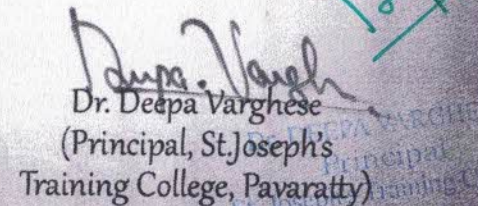 Deepa Vargh
Dr. Deepa Varghese
(Principal, St.Joseph's
Training College, Pavaratty)
DEEPA VARGHE
Principal
Training C